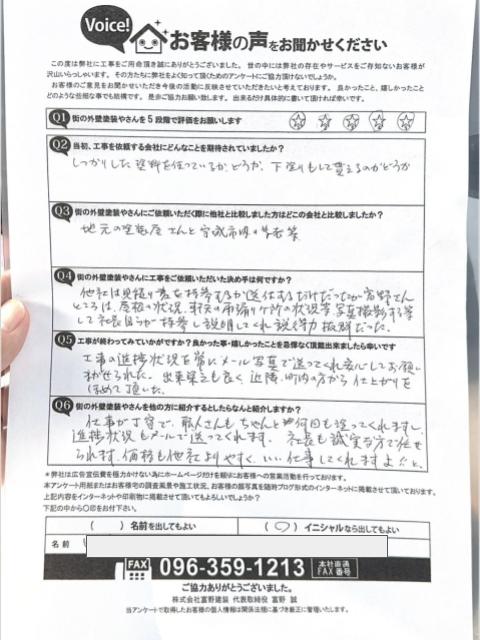 Voice!
お客様の声をお聞かせください
この度は弊社に工事をご用命頂き誠にありがとうございました。世の中には弊社の存在やサービスをご存知ないお客様が
沢山いらっしゃいます。その方たちに弊社をよく知って頂くためのアンケートにご協力頂けないでしょうか。
お客様のご意見をお聞かせいただき今後の活動に反映させていただきたいと考えております。良かったこと、嬉しかったこと
どのような些細な事でも結構です。是非ご協力お願い致します。出来るだけ具体的に書いて頂ければ幸いです。
Q1 街の外壁塗装やさんを5段階で評価をお願いします
Q2 当初、工事を依頼する会社にどんなことを期待されていましたか?
しっかりした塗料を使っているかどうか、下塗りもして貰えるのかどうか
Q3 街の外壁塗装やさんにご依頼いただく際に他社と比較しました方はどこの会社と比較しましたか?
地元の塗装屋さんと宇城市内の業者等
Q4 街の外壁塗装やさんに工事をご依頼いただいた決め手は何ですか?
他社は見積り書を持参するか送付するだけだったが富野さん
ところは、屋根の状況、軒天の雨漏りヶ所の状況等写真撮影する等
して社長自らが持参し説明してくれ説得力抜群だった。
Q5 工事が終わってみていかがですか?良かった事・嬉しかったことを忌憚なく頂戴出来ましたら幸いです
工事の進捗状況を常にメール写真で送ってくれ安心してお願い
出来栄えも良く、近隣、町内の方から仕上がりを
ほめて頂いた。
Q6 街の外壁塗装やさんを他の方に紹介するとしたらなんと紹介しますか?
仕事が丁寧で、職人さんもちゃんと何回も塗ってくれますし、
進捗状況もメールで送ってくれます。社長も誠実な方で任せ
られます。価格も他社よりやすく、いい仕事してくれますよ、と。
*弊社は広告宣伝費を極力かけない為にホームページだけを頼りにお客様への営業活動を行っております。
本アンケート用紙またはお客様宅の調査風景や施工状況、お客様の顔写真を随時ブログ形式のインターネットに掲載させて頂いております。
上記内容をインターネットや印刷物に掲載させて頂いてもよろしいでしょうか?
下記の中から○印をお付下さい。
( ) 名前を出してもよい
(○) イニシャルなら出してもよい
名前
FAX 096-359-1213 本社直通FAX番号
ご協力ありがとうございました。
株式会社富野建装 代表取締役 富野 誠
当アンケートで取得したお客様の個人情報は関係法規に基づき厳正に管理いたします。